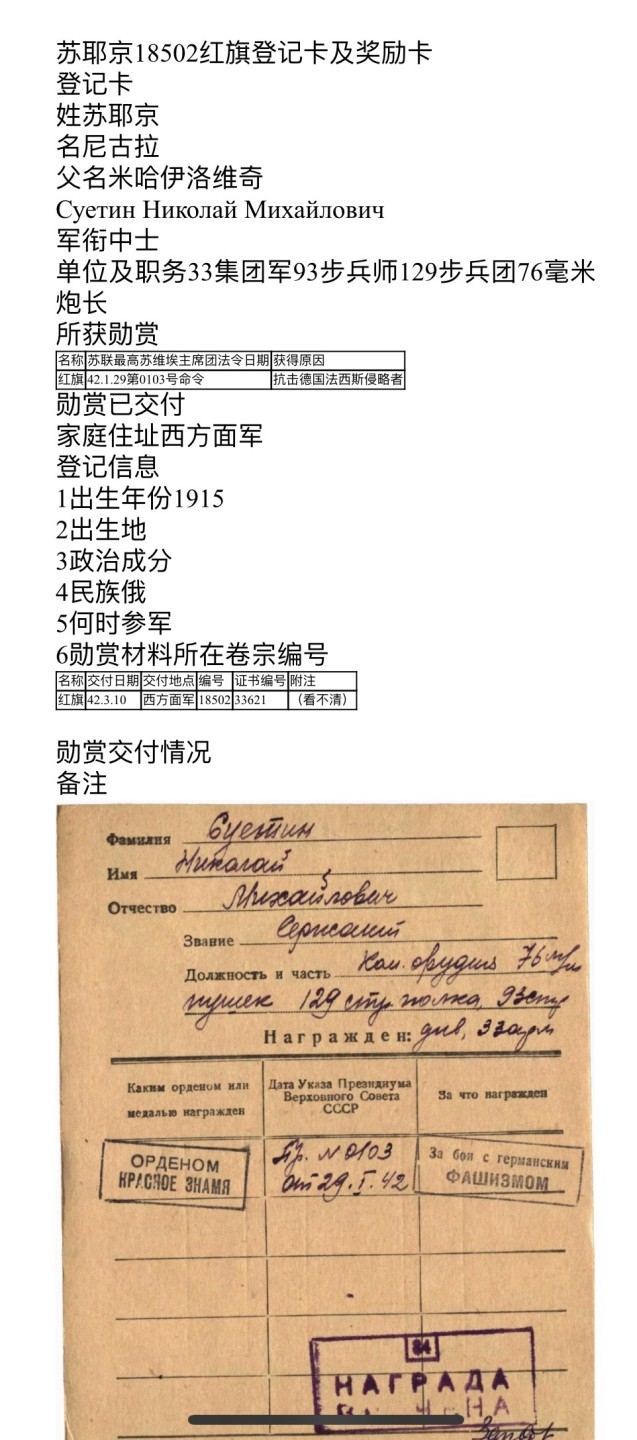 苏耶京18502红旗登记卡及奖励卡
登记卡
姓苏耶京
名尼古拉
父名米哈伊洛维奇
Суетин Николай Михайлович
军衔中士
单位及职务33集团军93步兵师129步兵团76毫米
炮长
所获勋赏
名称 苏联最高苏维埃主席团法令日期 获得原因
红旗 42.1.29第0103号命令 抗击德国法西斯侵略者
勋赏已交付
家庭住址西方面军
登记信息
1出生年份1915
2出生地
3政治成分
4民族俄
5何时参军
6勋赏材料所在卷宗编号
名称 交付日期 交付地点 编号 证书编号 附注
红旗 42.3.10 西方面军 18502 33621 （看不清）
勋赏交付情况
备注
Фамилия Суетин
Имя Николай
Отчество Михайлович
Звание Сержант
Должность и часть Ком. орудия 76 м/м
пушек 129 стр. полка, 93 стр
Награжден: див, 33 арм
Каким орденом или медалью награжден
Дата Указа Президиума Верховного Совета СССР
За что награжден
ОРДЕНОМ
КРАСНОЕ ЗНАМЯ
Пр. № 0103
от 29.I.42
За бои с германским
ФАШИЗМОМ
НАГРАДА